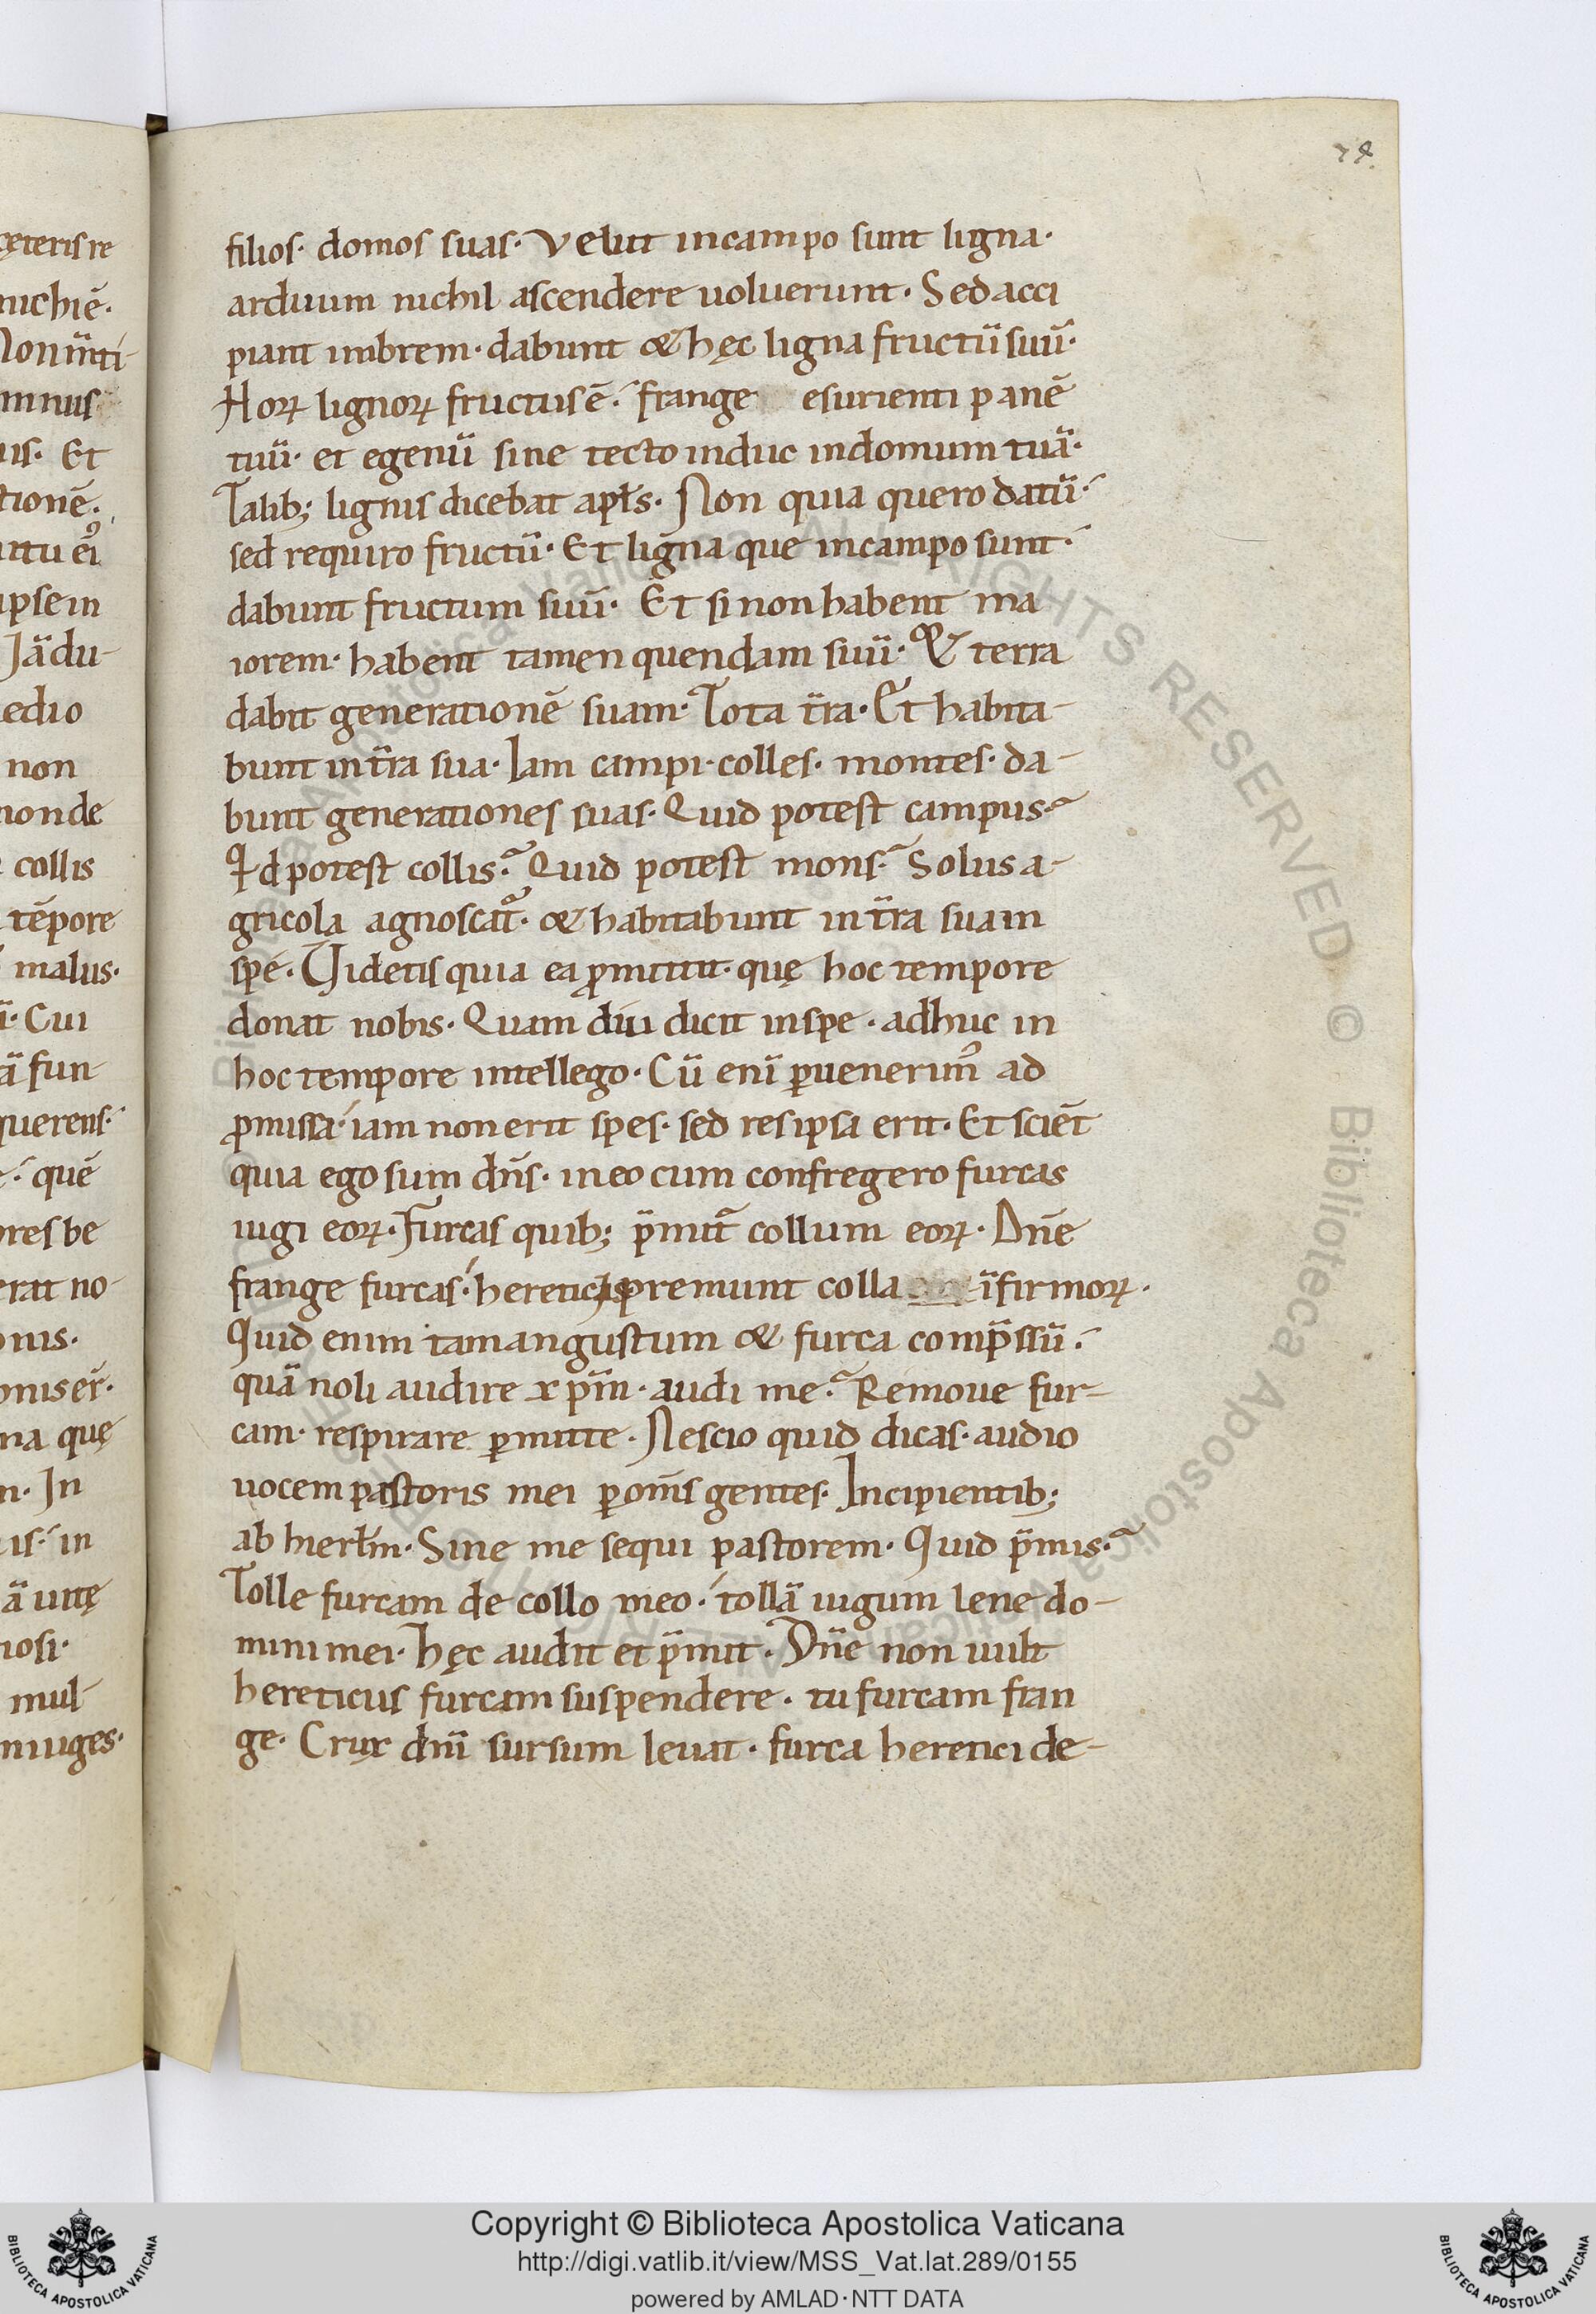 74
filios· domos suas· Velut incampo sunt ligna·
arduum nichil ascendere uoluerunt· Sed acci
piant imbrem· dabunt & hęc ligna fructū suū·
Hoꝝ lignoꝝ fructus ē· frange esurienti panē
tuū· et egenū sine tecto induc indomum tuā·
Talib; lignis dicebat apl̄s· Non quia quero datū·
sed requiro fructū· Et ligna que incampo sunt·
dabunt fructum suū· Et si non habent ma
iorem· habent tamen quendam suū· & terra
dabit generationē suam· Tota t̄ra· Et habita-
bunt int̄ra sua· Iam campi· colles· montes· da-
bunt generationes suas· Quid potest campus·
Qd potest collis· Quid potest mons· Solus a-
gricola agnoscat᷑· & habitabunt int̄ra sua in
spe· Videtis quia ea ꝓmittit· quę hoc tempore
donat nobis· Quam diu dicit inspe· adhuc in
hoc tempore intellego· Cū enī ꝑuenerim᷒ ad
ꝓmissa· iam non erit spes· sed res ipsa erit· Et sciēt
quia ego sum dn̄s· in eo cum confregero furcas
iugi eoꝝ· Furcas quib; p̄mit̄ collum eoꝝ· Dn̄e
frange furcas· heretici premunt colla īfirmoꝝ·
Quid enim tam angustum & furca comp̄ssū·
quā noli audire xp̄m· audi me· Remoue fur-
cam· respirare ꝑmitte· Nescio quid dicas· audio
uocem pastoris mei ꝑ om̄s gentes· Incipientib;
ab hierl̄m· Sine me sequi pastorem· Quid p̄mis·
Tolle furcam de collo meo· tollā iugum lene do-
mini mei· hęc audit et p̄mit· Dn̄e non uult
hereticus furcam suspendere· tu furcam fran
ge· Crux dn̄i sursum leuat· furca heretici de-
cęteris re
nichiē·
Non īnti-
mnus
is· Et
tionē·
ipse in
Iā du-
edio
non
non de
collis
tēpore
malus·
Cui
ā fun
querens·
quē
res be
erat no-
onis·
na quę
n· In
is· in
ā uitę
iosi·
mul-
niuges·
Copyright © Biblioteca Apostolica Vaticana
http://digi.vatlib.it/view/MSS_Vat.lat.289/0155
powered by AMLAD·NTT DATA
BIBLIOTECA APOSTOLICA VATICANA
BIBLIOTECA APOSTOLICA VATICANA
© Biblioteca Apostolica Vaticana ALL RIGHTS RESERVED © Biblioteca Apostolica Vaticana ALL RIGHTS RESERVED